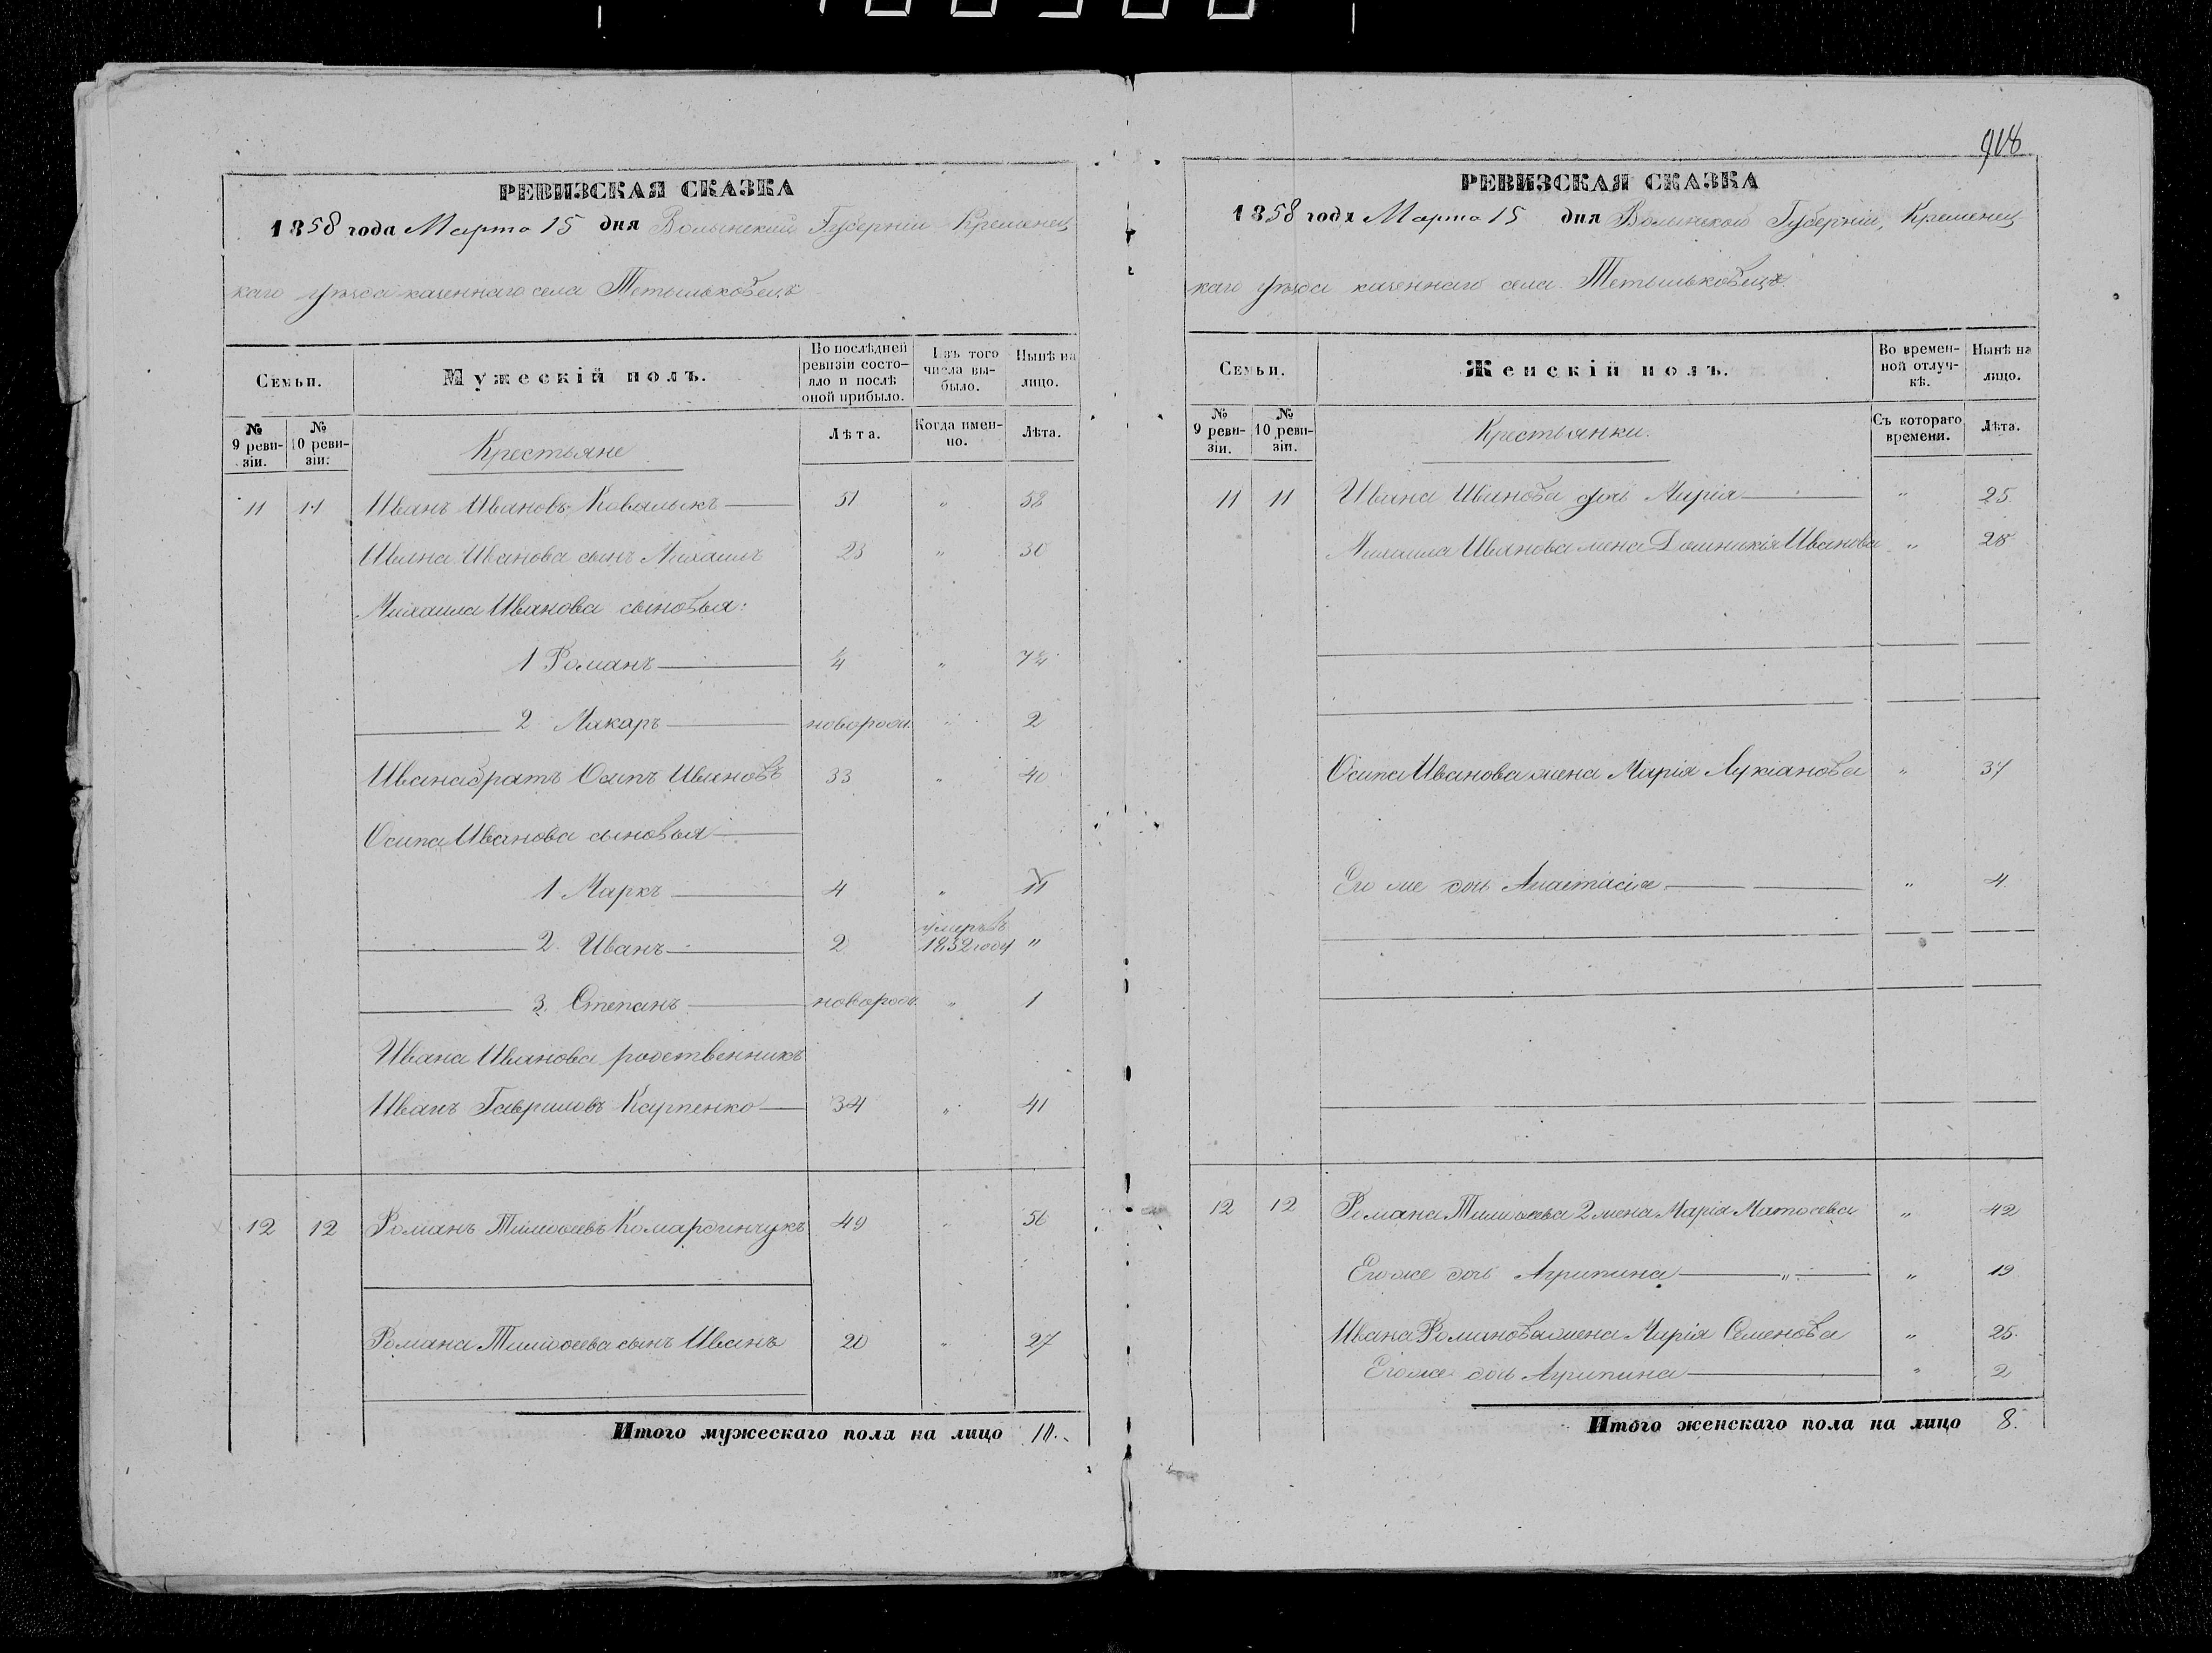 918
РЕВИЗСКАЯ СКАЗКА
1858 года Марта 15 дня Волынской Губерніи Кременец
каго уѣзда казеннаго села Тетыльковецъ
Семьи.
Мужескій полъ.
По послѣдней ревизіи состояло и послѣ оной прибыло.
Изъ того числа выбыло.
Нынѣ на лицо.
№ 9 ревизіи.
№ 10 ревизіи.
Крестьяне
Лѣта.
Когда именно.
Лѣта.
11 11 Иванъ Ивановъ Ковалыкъ 51 " 58
Ивана Иванова сынъ Михаилъ 23 " 30
Михаила Иванова сыновья:
1 Романъ 4 "
2 Макаръ новорожд. " 2
Ивана братъ Осипъ Ивановъ 33 " 40
Осипа Иванова сыновья
1 Маркъ 4 " 11
2. Иванъ 2 умеръ въ 1852 году "
3. Степанъ новорожд. " 1
Ивана Иванова родственникъ
Иванъ Гавриловъ Карпенко 34 " 41
12 12 Романъ Тимофеевъ 49 " 56
Романа Тимофеева сынъ Иванъ 20 " 27
Итого мужескаго пола на лицо 10.
РЕВИЗСКАЯ СКАЗКА
1858 года Марта 15 дня Волынской Губерніи, Кременец
каго уѣзда казеннаго села Тетыльковецъ
Семьи.
Женскій полъ.
Во временной отлучкѣ.
Нынѣ на лицо.
№ 9 ревизіи.
№ 10 ревизіи.
Крестьянки.
Съ котораго времени.
Лѣта.
11 11 Ивана Иванова дочь Марія " 25
Михаила Иванова жена Домникія Иванова " 28
Осипа Иванова жена Марія Лукіанова " 37
Его же дочь Анастасія " 4
12 12 Романа Тимофеева 2 жена Марія Матфеева " 42
Его же дочь Агрипина " " 19
Ивана Романова жена Марія Семенова " 25.
Его же дочь Агрипина " 2
Итого женскаго пола на лицо 8.